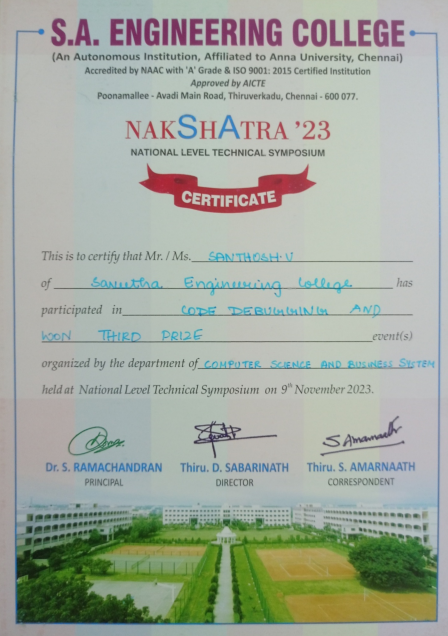 S.A. ENGINEERING COLLEGE
(An Autonomous Institution, Affiliated to Anna University, Chennai)
Accredited by NAAC with 'A' Grade & ISO 9001: 2015 Certified Institution
Approved by AICTE
Poonamallee - Avadi Main Road, Thiruverkadu, Chennai - 600 077.
NAKSHATRA '23
NATIONAL LEVEL TECHNICAL SYMPOSIUM
CERTIFICATE
This is to certify that Mr. / Ms. SANTHOSH.V
of Saveetha Engineering College has
participated in CODE DEBUGGING AND
WON THIRD PRIZE event(s)
organized by the department of COMPUTER SCIENCE AND BUSINESS SYSTEM
held at National Level Technical Symposium on 9th November 2023.
S. Amarnaath
Dr. S. RAMACHANDRAN Thiru. D. SABARINATH Thiru. S. AMARNAATH
PRINCIPAL DIRECTOR CORRESPONDENT